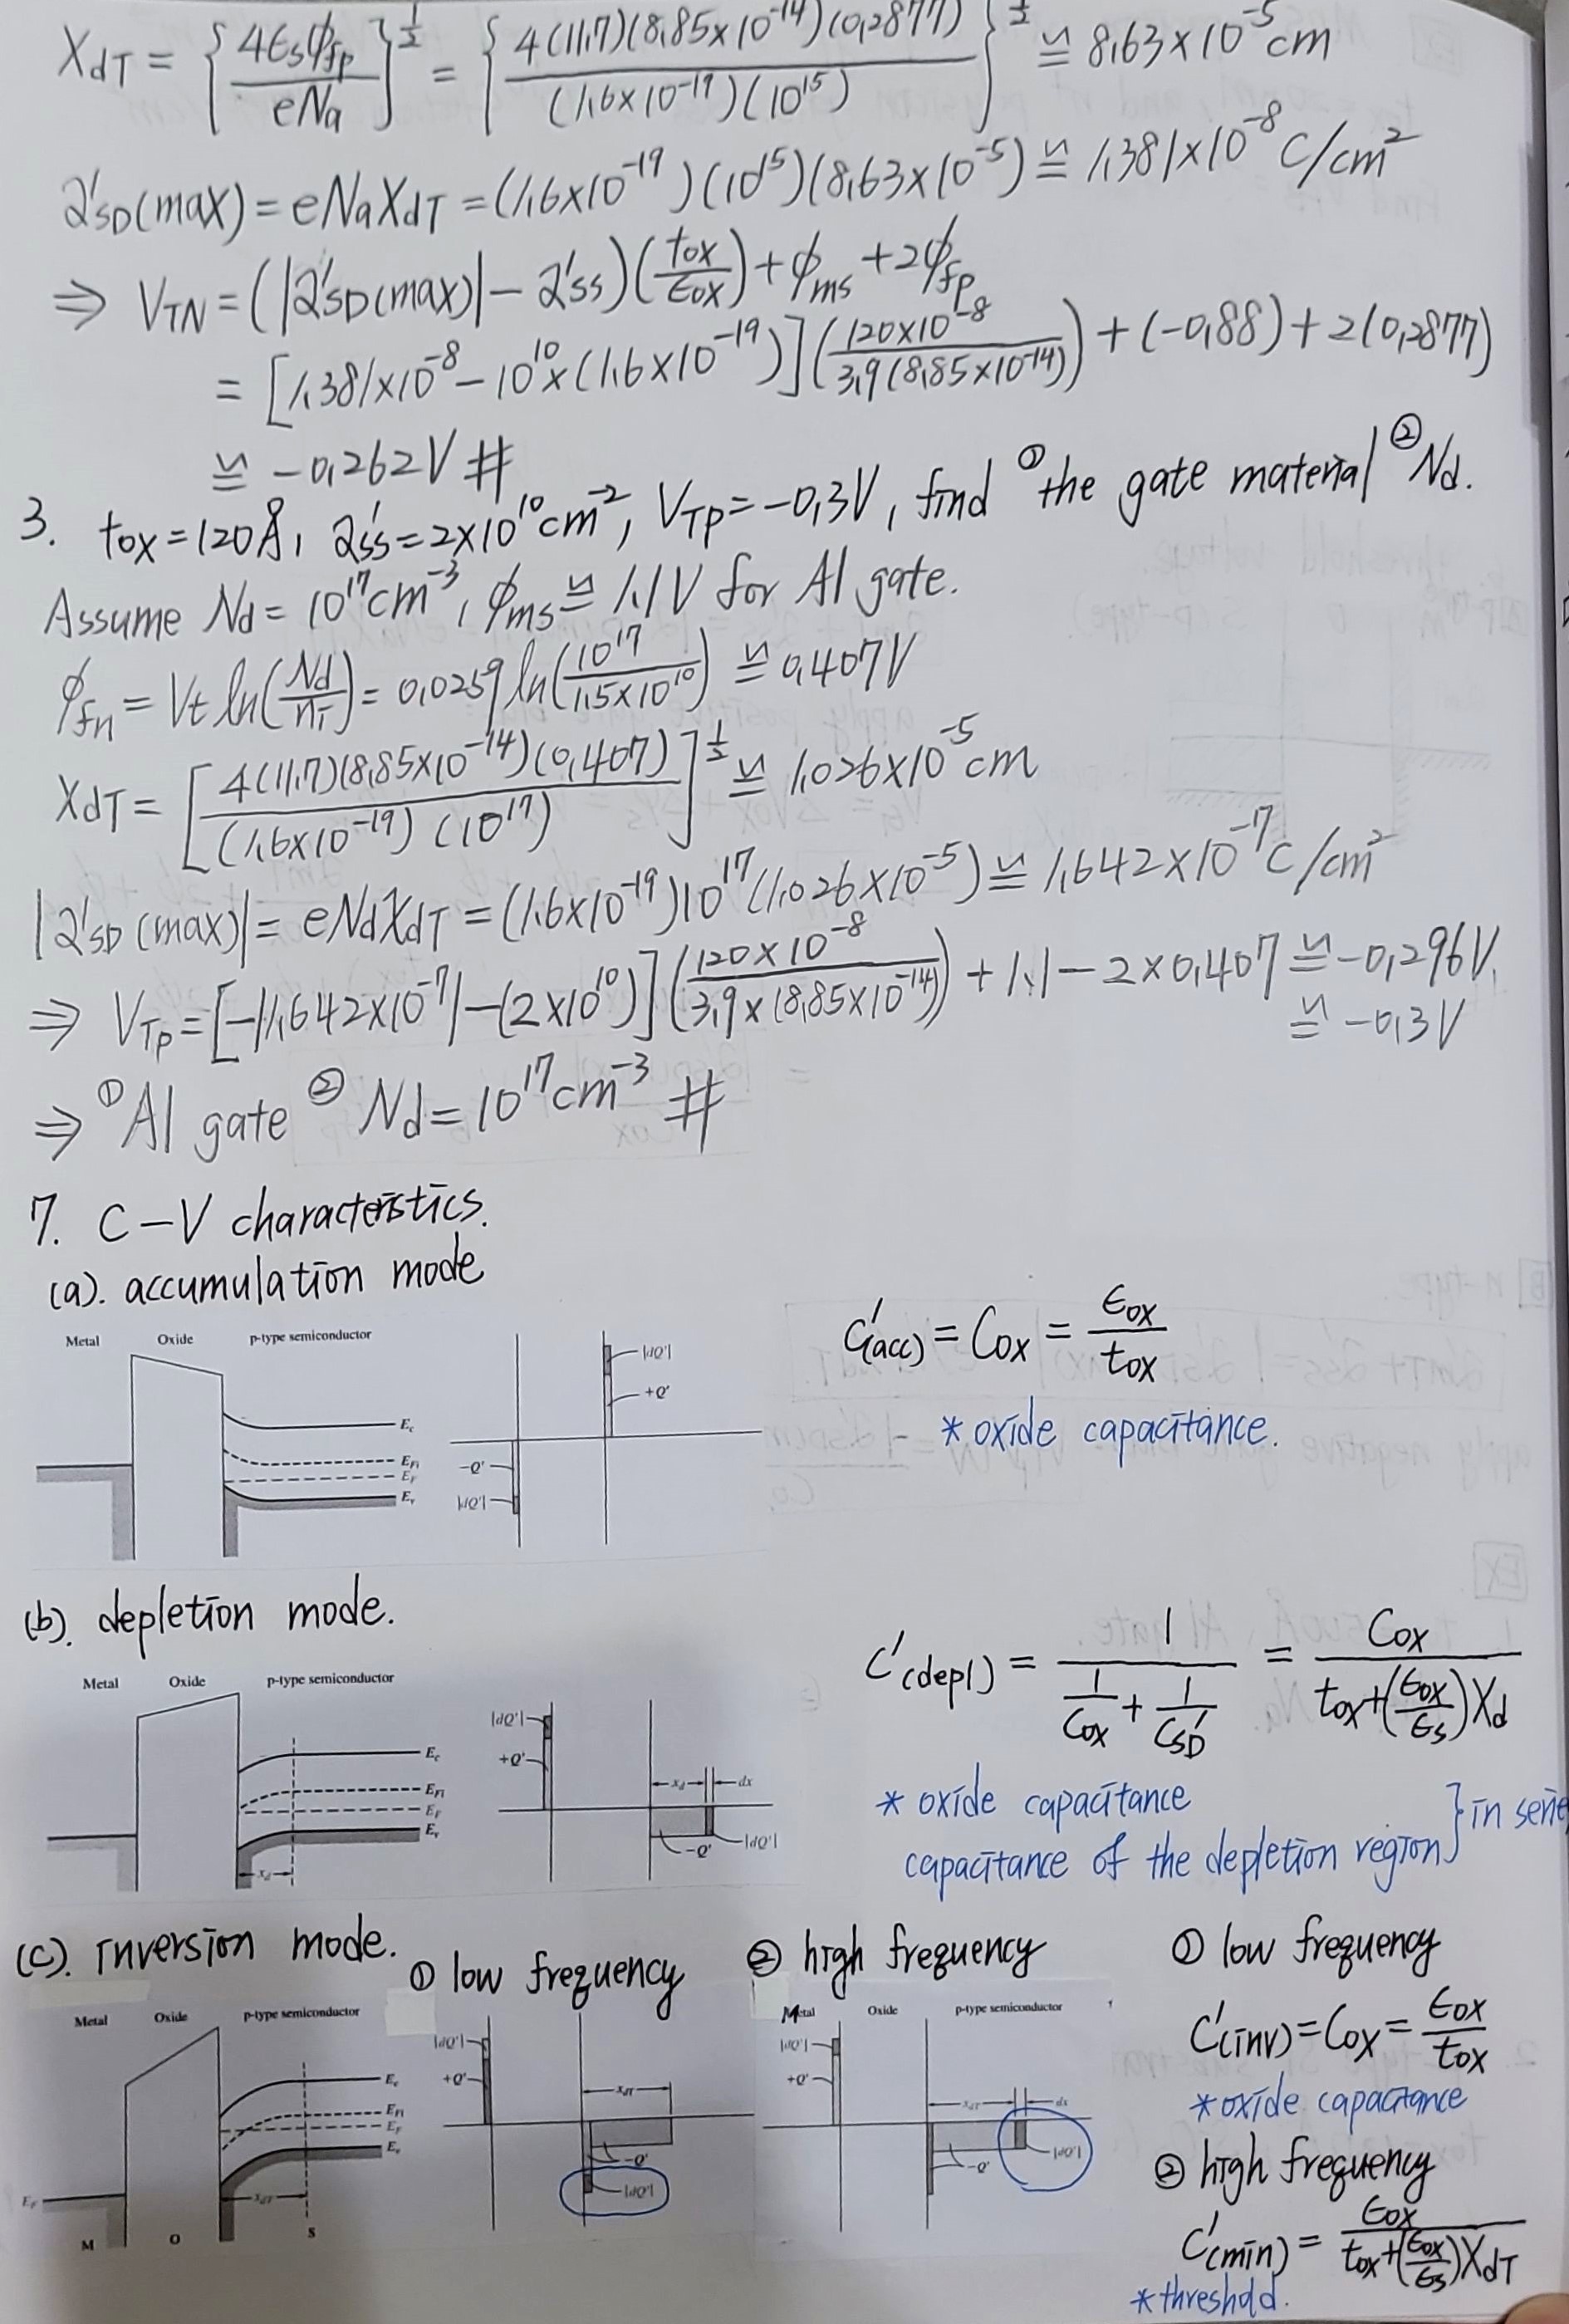 XdT = {4Єsϕfp / eNa}^½ = {4(11.7)(8.85×10⁻¹⁴)(0.2877) / (1.6×10⁻¹⁹)(10¹⁵)}^½ ≌ 8.63×10⁻⁵cm
Q'SD(max) = eNaXdT = (1.6×10⁻¹⁹)(10¹⁵)(8.63×10⁻⁵) ≌ 1.381×10⁻⁸ C/cm²
⇒ VTN = (|Q'SD(max)| − Q'ss)(tox/Єox) + ϕms + 2ϕfp
= [1.381×10⁻⁸ − 10¹⁰×(1.6×10⁻¹⁹)](120×10⁻⁸ / 3.9(8.85×10⁻¹⁴)) + (−0.88) + 2(0.2877)
≌ −0.262V #
3. tox = 120Å, Q'ss = 2×10¹⁰cm⁻², VTP = −0.3V, find ① the gate material ② Nd.
Assume Nd = 10¹⁷cm⁻³, ϕms ≌ 1.1V for Al gate.
ϕfn = Vt ln(Nd/ni) = 0.0259 ln(10¹⁷ / 1.5×10¹⁰) ≌ 0.407V
XdT = [4(11.7)(8.85×10⁻¹⁴)(0.407) / (1.6×10⁻¹⁹)(10¹⁷)]^½ ≌ 1.026×10⁻⁵cm
|Q'SD(max)| = eNdXdT = (1.6×10⁻¹⁹)10¹⁷(1.026×10⁻⁵) ≌ 1.642×10⁻⁷C/cm²
⇒ VTP = [−|1.642×10⁻⁷| − (2×10¹⁰)](120×10⁻⁸ / 3.9×(8.85×10⁻¹⁴)) + 1.1 − 2×0.407 ≌ −0.296V.
≌ −0.3V
⇒ ① Al gate ② Nd = 10¹⁷cm⁻³ #
7. C−V characteristics.
(a). accumulation mode
Metal Oxide p-type semiconductor
Ec
EFi
EF
Ev
|dQ'|
+Q'
−Q'
|dQ'|
C'(acc) = Cox = Єox / tox
* oxide capacitance.
(b). depletion mode.
Metal Oxide p-type semiconductor
Ec
EFi
EF
Ev
xd
|dQ'|
+Q'
xd dx
−Q' |dQ'|
C'(depl) = 1 / (1/Cox + 1/C'SD) = Cox / (tox+(Єox/Єs)Xd)
* oxide capacitance
capacitance of the depletion region } in serie
(c). inversion mode.
① low frequency
② high frequency
Metal Oxide p-type semiconductor
Ec
EFi
EF
Ev
EF
xdT
M O S
|dQ'|
+Q'
xdT
−Q'
|dQ'|
Metal Oxide p-type semiconductor
|dQ'|
+Q'
xdT dx
−Q' |dQ'|
① low frequency
C'(inv) = Cox = Єox / tox
* oxide capacitance
② high frequency
C'(min) = Єox / (tox+(Єox/Єs)XdT)
* threshold.